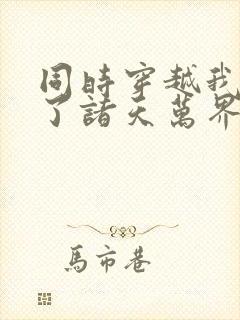 同時穿越我
了諸天萬界
馬市巷